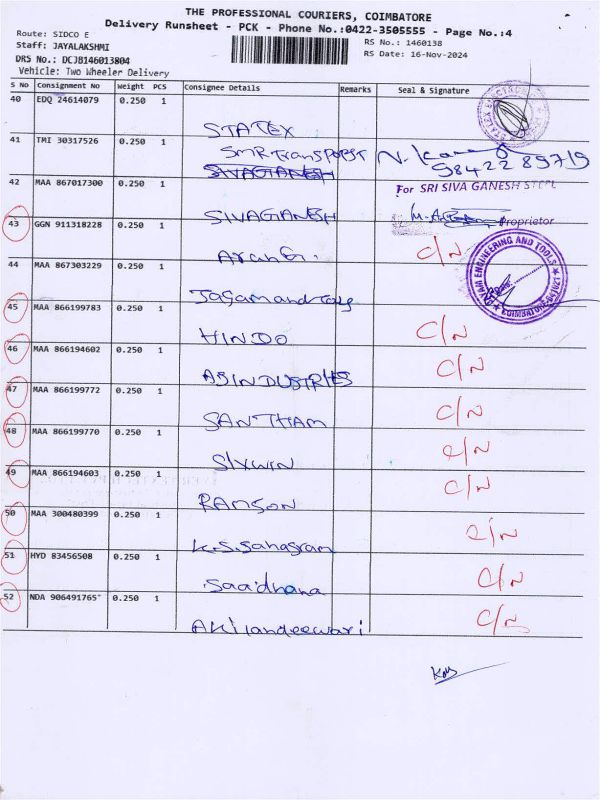 THE PROFESSIONAL COURIERS, COIMBATORE
Delivery Runsheet - PCK - Phone No.:0422-3505555 - Page No.:4
Route: SIDCO E
Staff: JAYALAKSHMI
DRS No.: DCJB146013804
Vehicle: Two Wheeler Delivery
RS No.: 1460138
RS Date: 16-Nov-2024
S No Consignment No Weight PCS Consignee Details Remarks Seal & Signature
40 EDQ 24614079 0.250 1
STATEX
41 TMI 30317526 0.250 1
SMR Transport
98422 89719
SIVAGANESH
42 MAA 867017300 0.250 1
For SRI SIVA GANESH STEEL
SIVAGANESH
Proprietor
43 GGN 911318228 0.250 1
C/N
44 MAA 867303229 0.250 1
ENGINEERING AND TOOLS
45 MAA 866199783 0.250 1
HINDO C/N
46 MAA 866194602 0.250 1
ABINDUSTRIES C/N
47 MAA 866199772 0.250 1
SANTHAM C/N
48 MAA 866199770 0.250 1
SIXWIN C/N
49 MAA 866194603 0.250 1
RAMSON C/N
50 MAA 300480399 0.250 1
K.S.Sanagram C/N
51 HYD 83456508 0.250 1
Saadhana C/N
52 NDA 906491765 0.250 1
Akilandeewari C/N